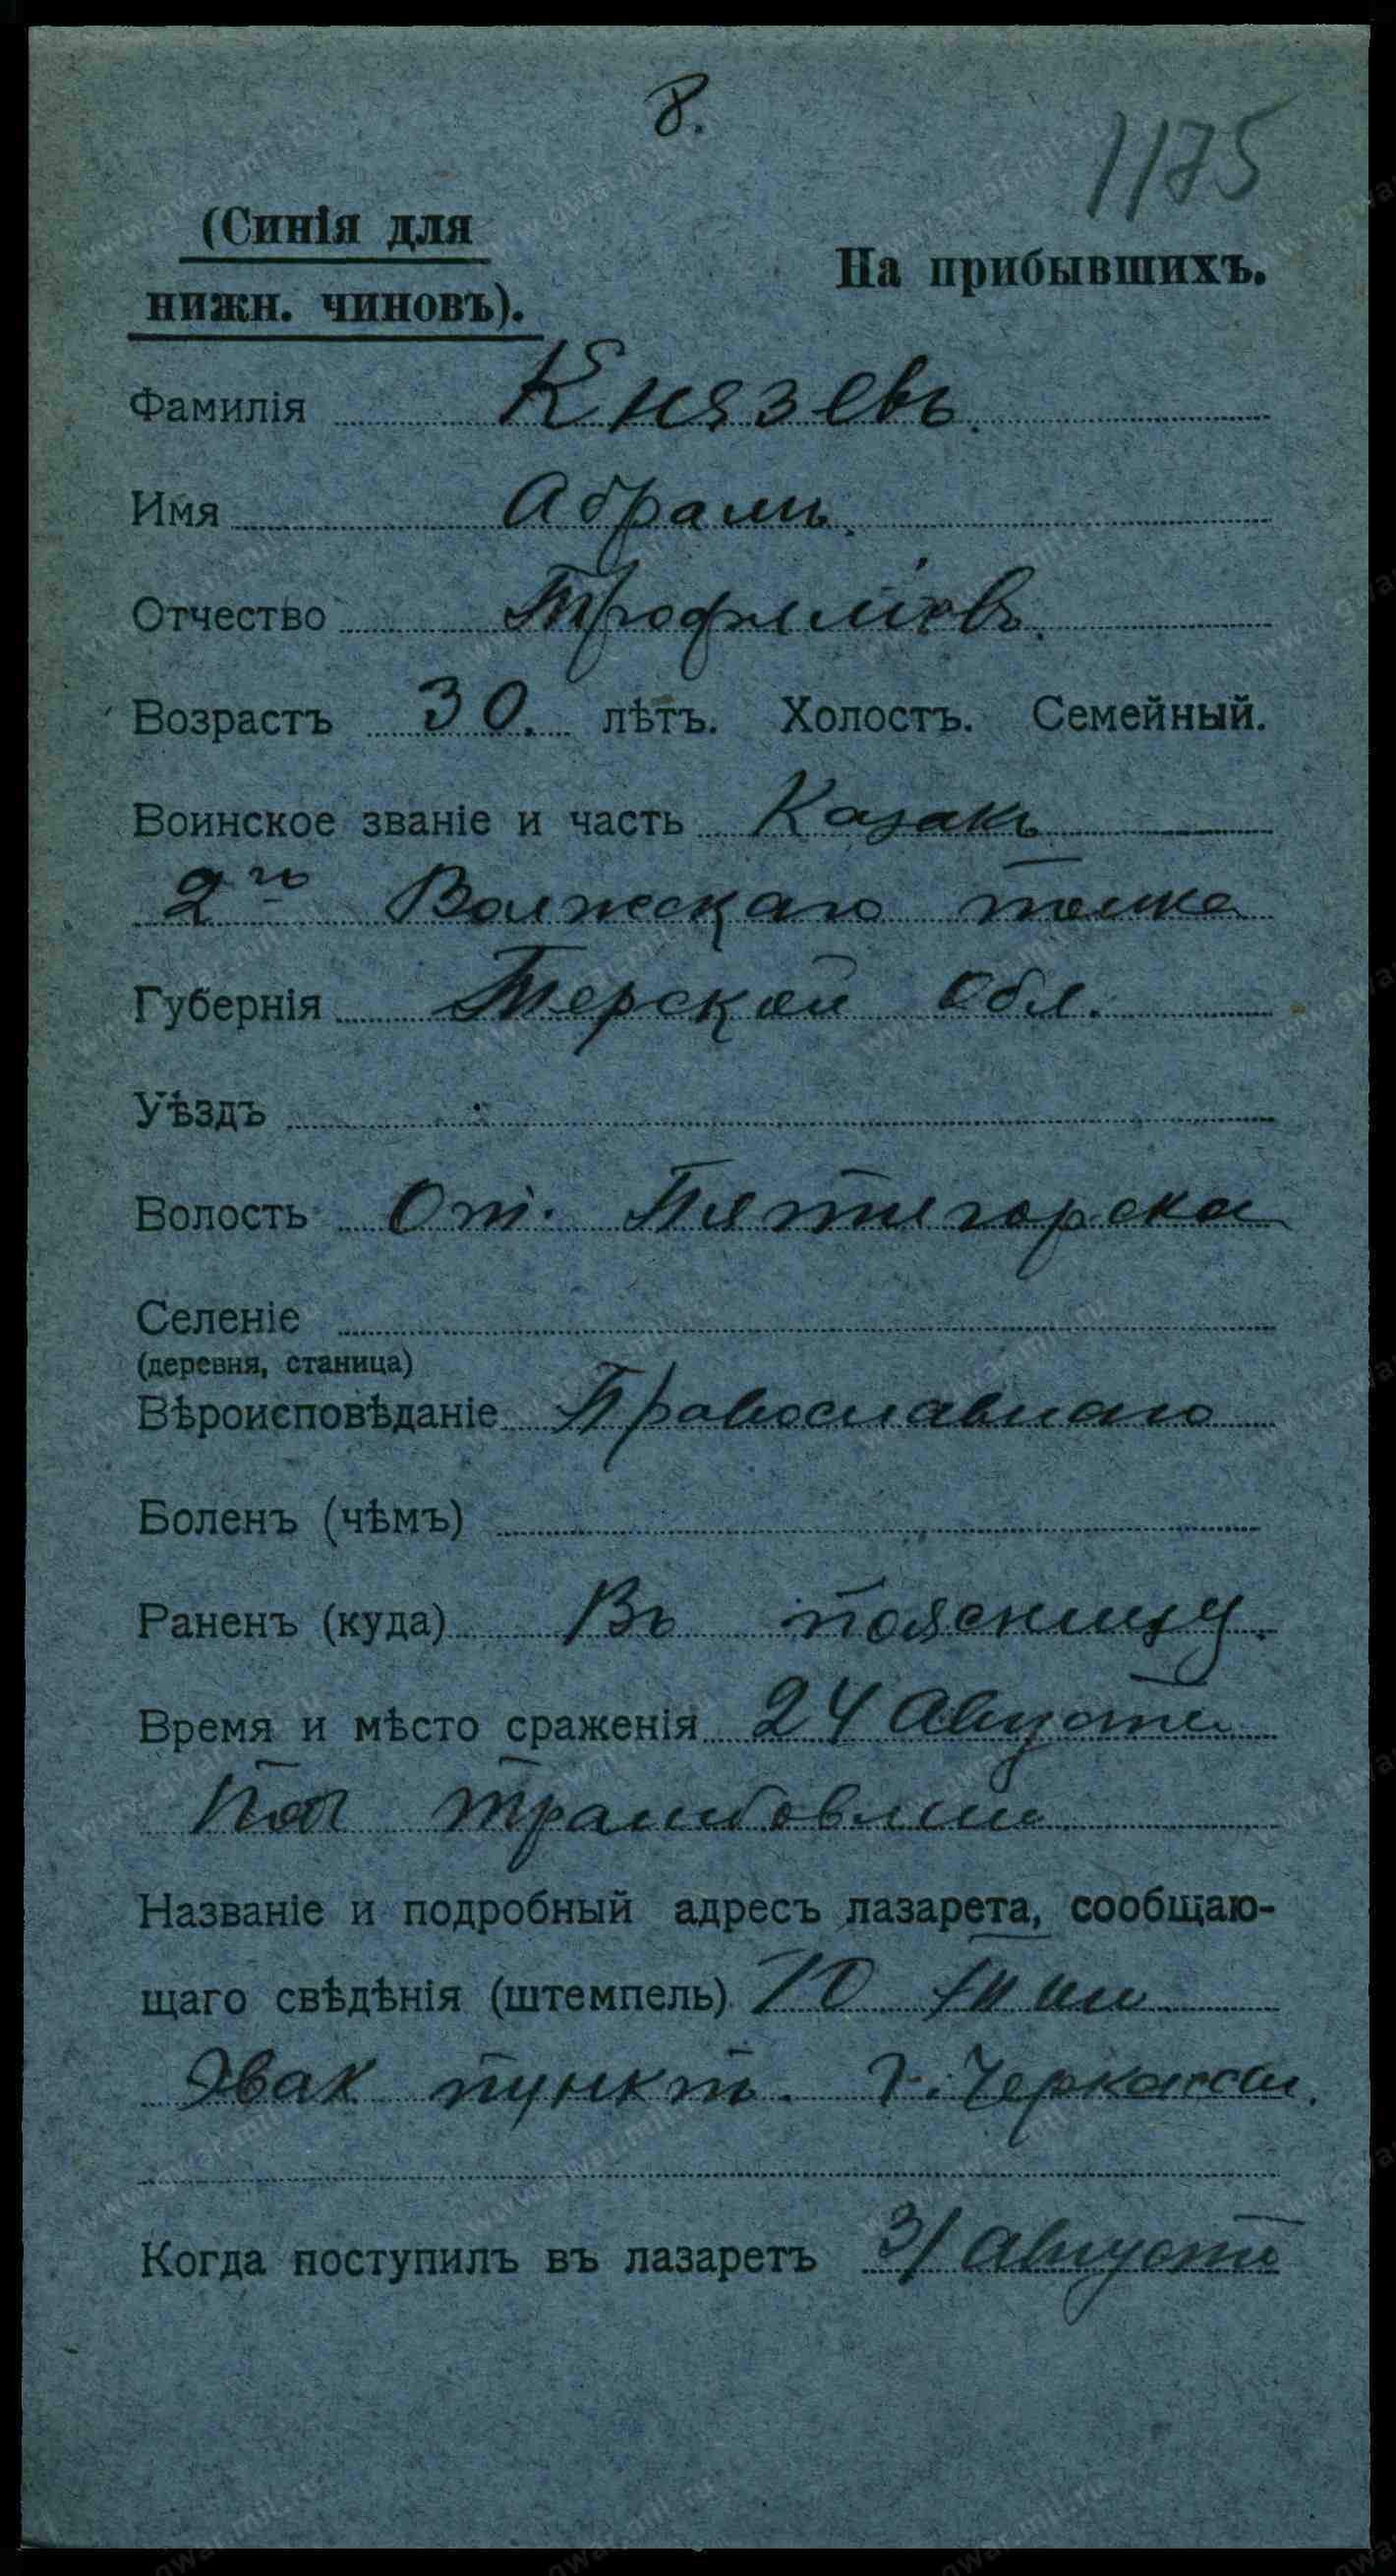 8.
1175
(Синія для
нижн. чиновъ).
На прибывшихъ.
Фамилія Князевъ.
Имя Абрамъ.
Отчество Трофимовъ.
Возрастъ 30. лѣтъ. Холостъ. Семейный.
Воинское званіе и часть Казакъ
2го Волжскаго полка
Губернія Терской Обл.
Уѣздъ
Волость От. Пятигорска
Селеніе
(деревня, станица)
Вѣроисповѣданіе Православнаго
Боленъ (чѣмъ)
Раненъ (куда) Въ поясницу.
Время и мѣсто сраженія 24 Августа
Под Трамбовлии
Названіе и подробный адресъ лазарета, сообщаю-
щаго свѣдѣнія (штемпель) 70
Эвак пункт. г. Черкассы.
Когда поступилъ въ лазаретъ 31 Августа